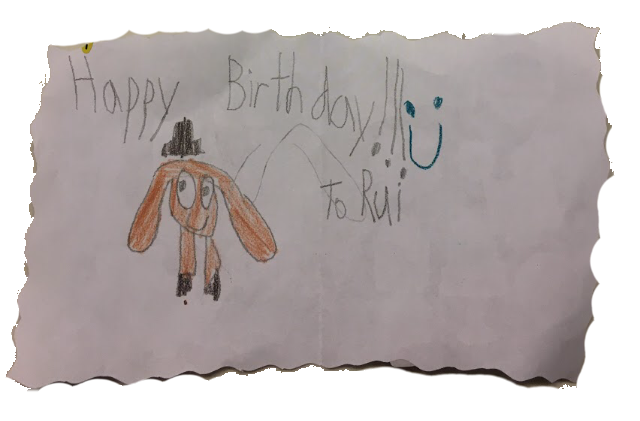 Happy Birthday!!!
To Rui